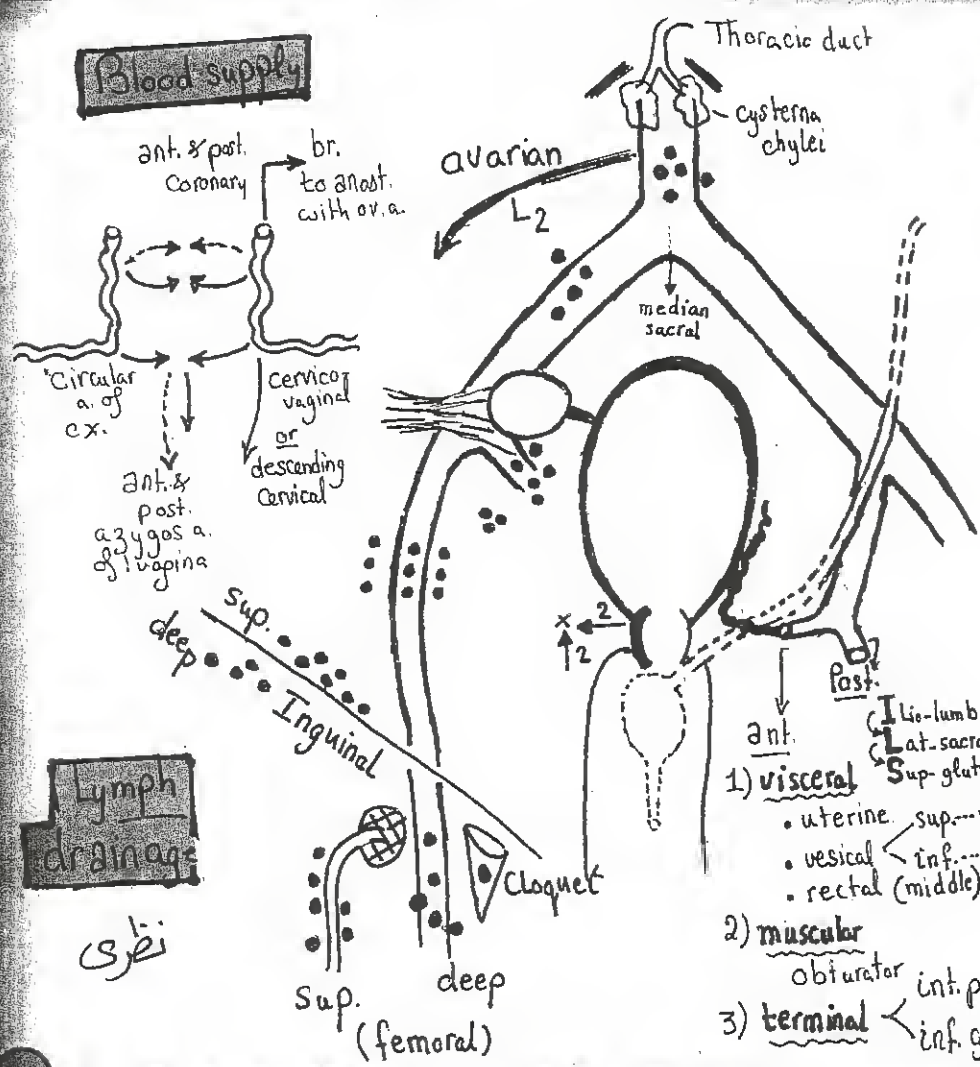 Blood supply
ant. & post.
coronary
br.
to anast.
with ov. a.
"Circular
a. of
cx.
cervico-
vaginal
or
descending
cervical
ant. &
post.
azygos a.
of vagina
Thoracic duct
cysterna
chylei
avarian
L2
median
sacral
x 2
2
sup.
deep
Inguinal
Lymph
drainage
نظرى
Cloquet
Sup.
deep
(femoral)
Post.
Ilio-lumb
Lat-sacr
Sup-glut
ant.
1) visceral
• uterine
• vesical
sup....
inf....
• rectal (middle)
2) muscular
obturator
3) terminal
int. p
inf. g